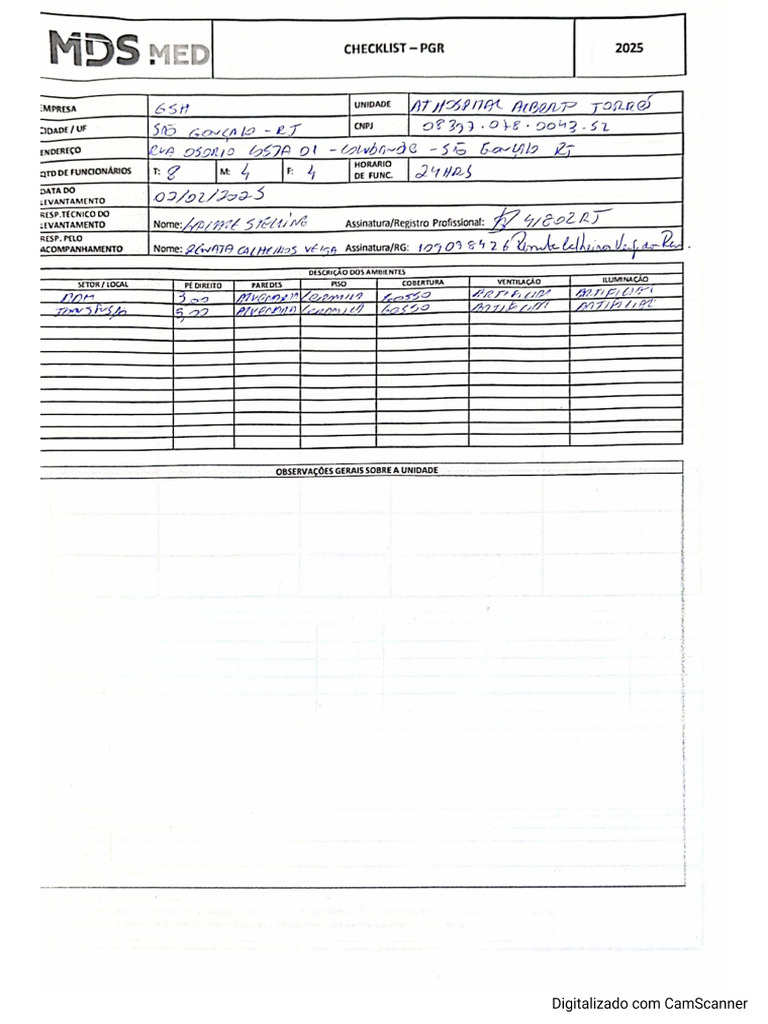 MDS MED
CHECKLIST – PGR
2025
EMPRESA GSH UNIDADE AT HOSPITAL ALBERTO TORRES
CIDADE / UF SÃO GONÇALO - RJ CNPJ 08397.078.0043.52
ENDEREÇO RUA OSORIO COSTA 01 - COLUBANDE - SÃO GONÇALO RJ
QTD DE FUNCIONÁRIOS T: 8 M: 4 F: 4 HORARIO DE FUNC. 24HRS
DATA DO LEVANTAMENTO 02/2025
RESP.TÉCNICO DO LEVANTAMENTO Nome: Assinatura/Registro Profissional: 41802RJ
RESP. PELO ACOMPANHAMENTO Nome: RENATA CALHEIROS VEIGA Assinatura/RG:
DESCRIÇÃO DOS AMBIENTES
SETOR / LOCAL PÉ DIREITO PAREDES PISO COBERTURA VENTILAÇÃO ILUMINAÇÃO
3,00 ALVENARIA CERAMICA GESSO ARTIFICIAL ARTIFICIAL
ALVENARIA CERAMICA GESSO ARTIFICIAL ARTIFICIAL
OBSERVAÇÕES GERAIS SOBRE A UNIDADE
Digitalizado com CamScanner